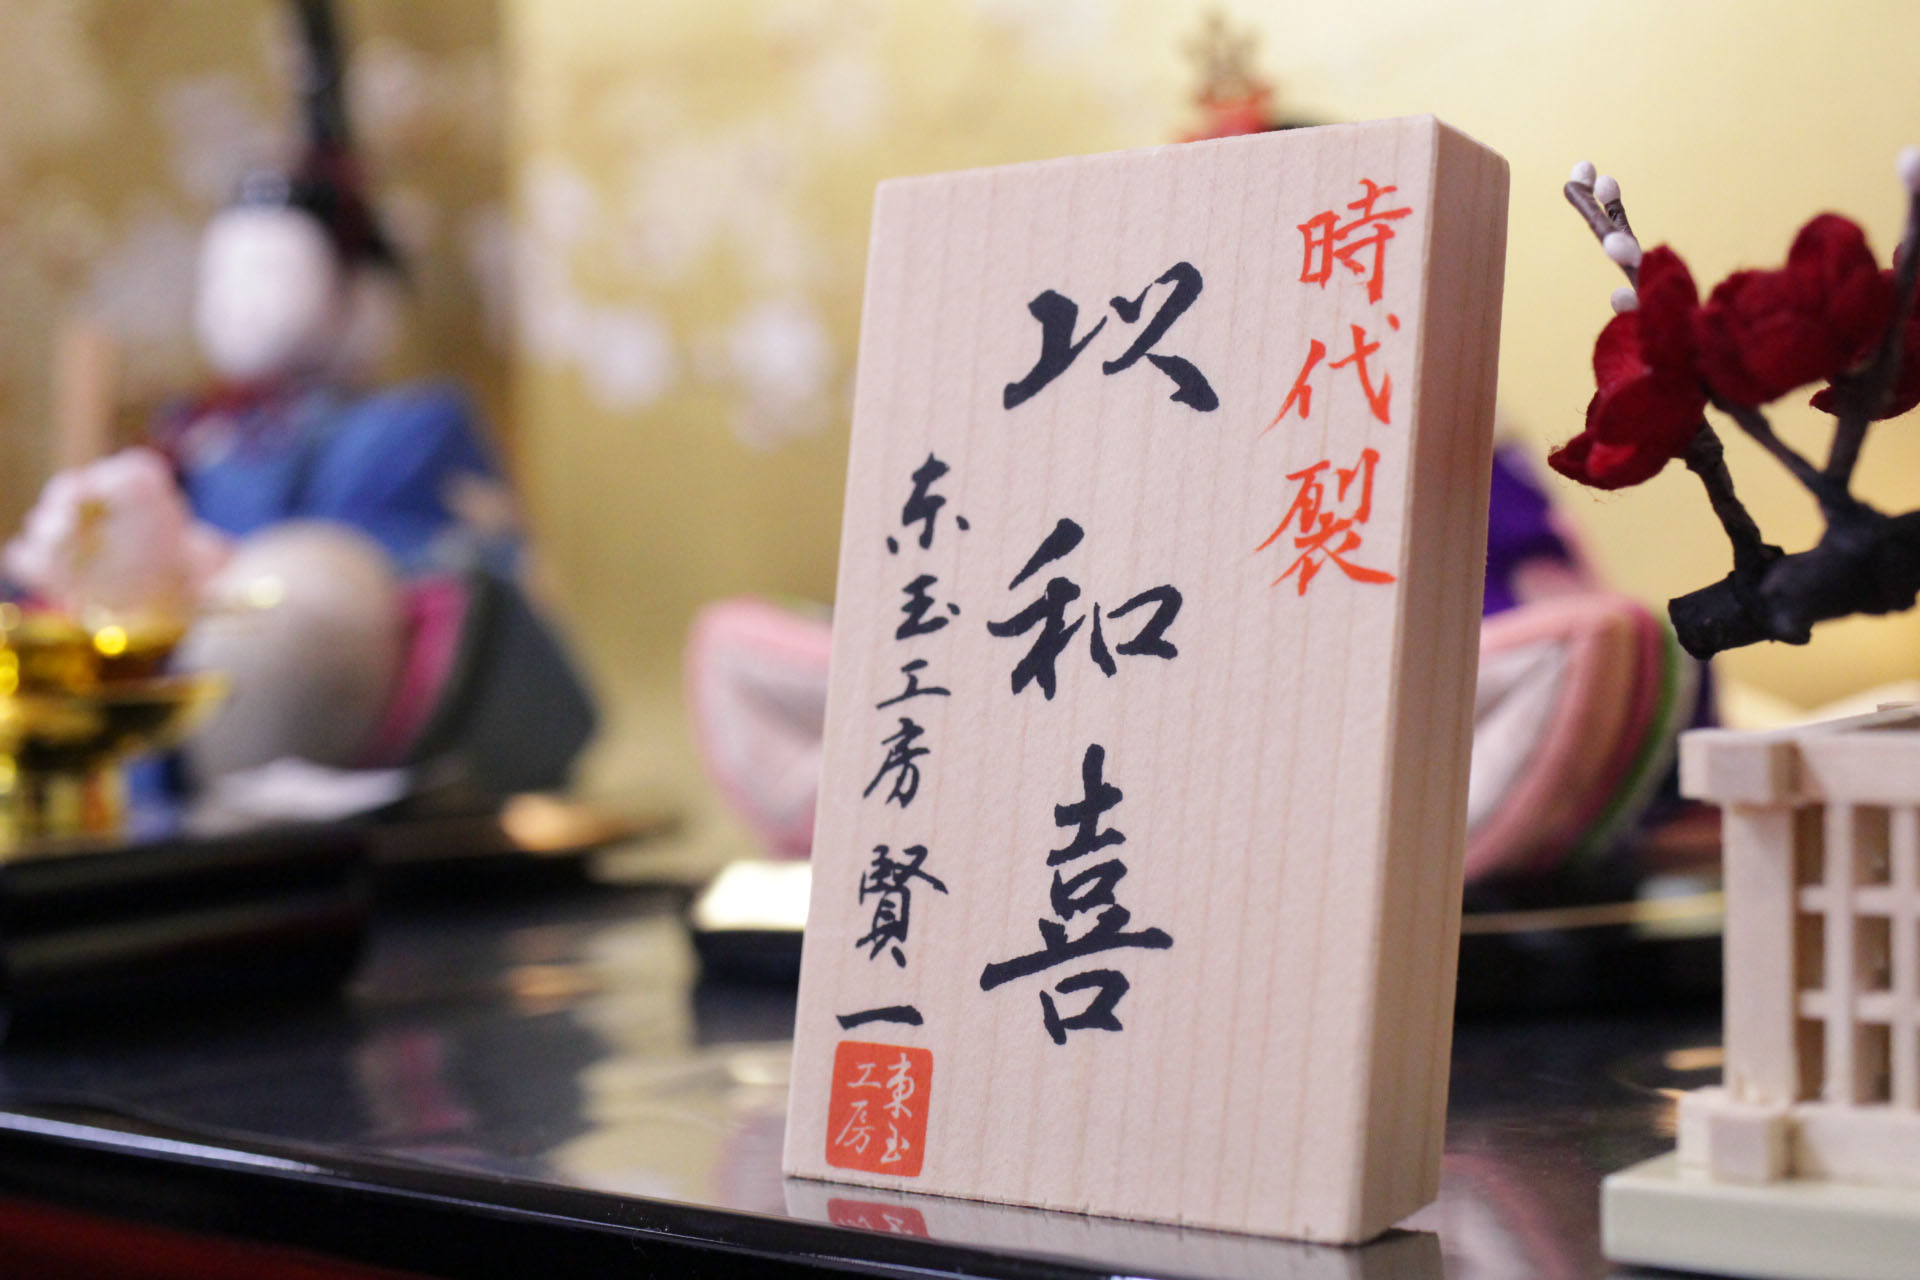 時代裂
以和喜
东玉工房 賢一
東玉
工房